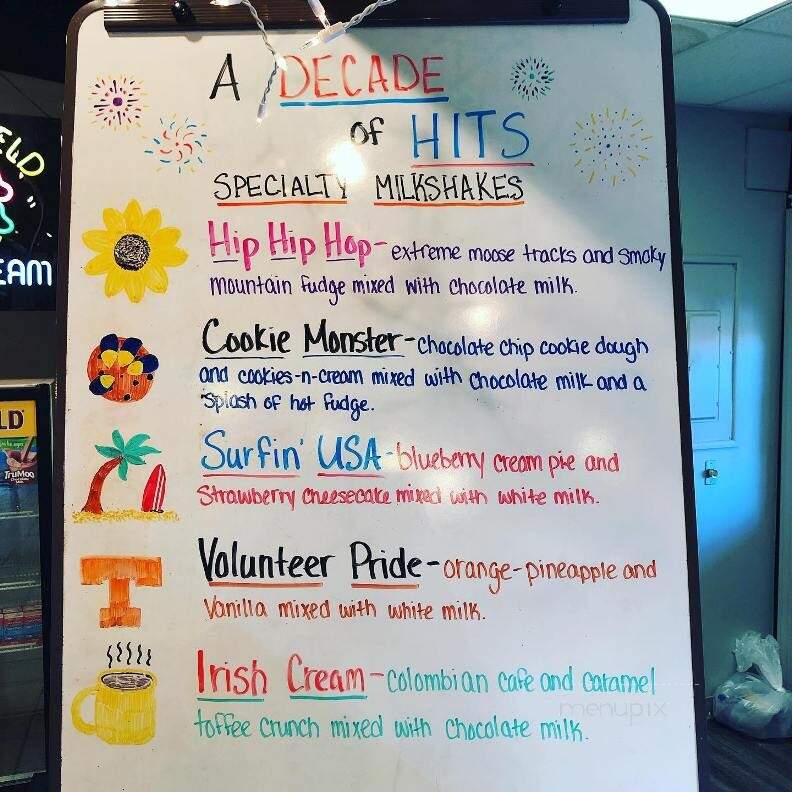 A DECADE
OF HITS
SPECIALTY MILKSHAKES
Hip Hip Hop- extreme moose tracks and smoky
mountain fudge mixed with chocolate milk.
Cookie Monster- chocolate chip cookie dough
and cookies-n-cream mixed with chocolate milk and a
splash of hot fudge.
Surfin' USA- blueberry cream pie and
Strawberry cheesecake mixed with white milk.
T
Volunteer Pride- orange-pineapple and
Vanilla mixed with white milk.
Irish Cream- colombian cafe and caramel
toffee crunch mixed with chocolate milk.
ELD
EAM
LD
TruMoo
menupix